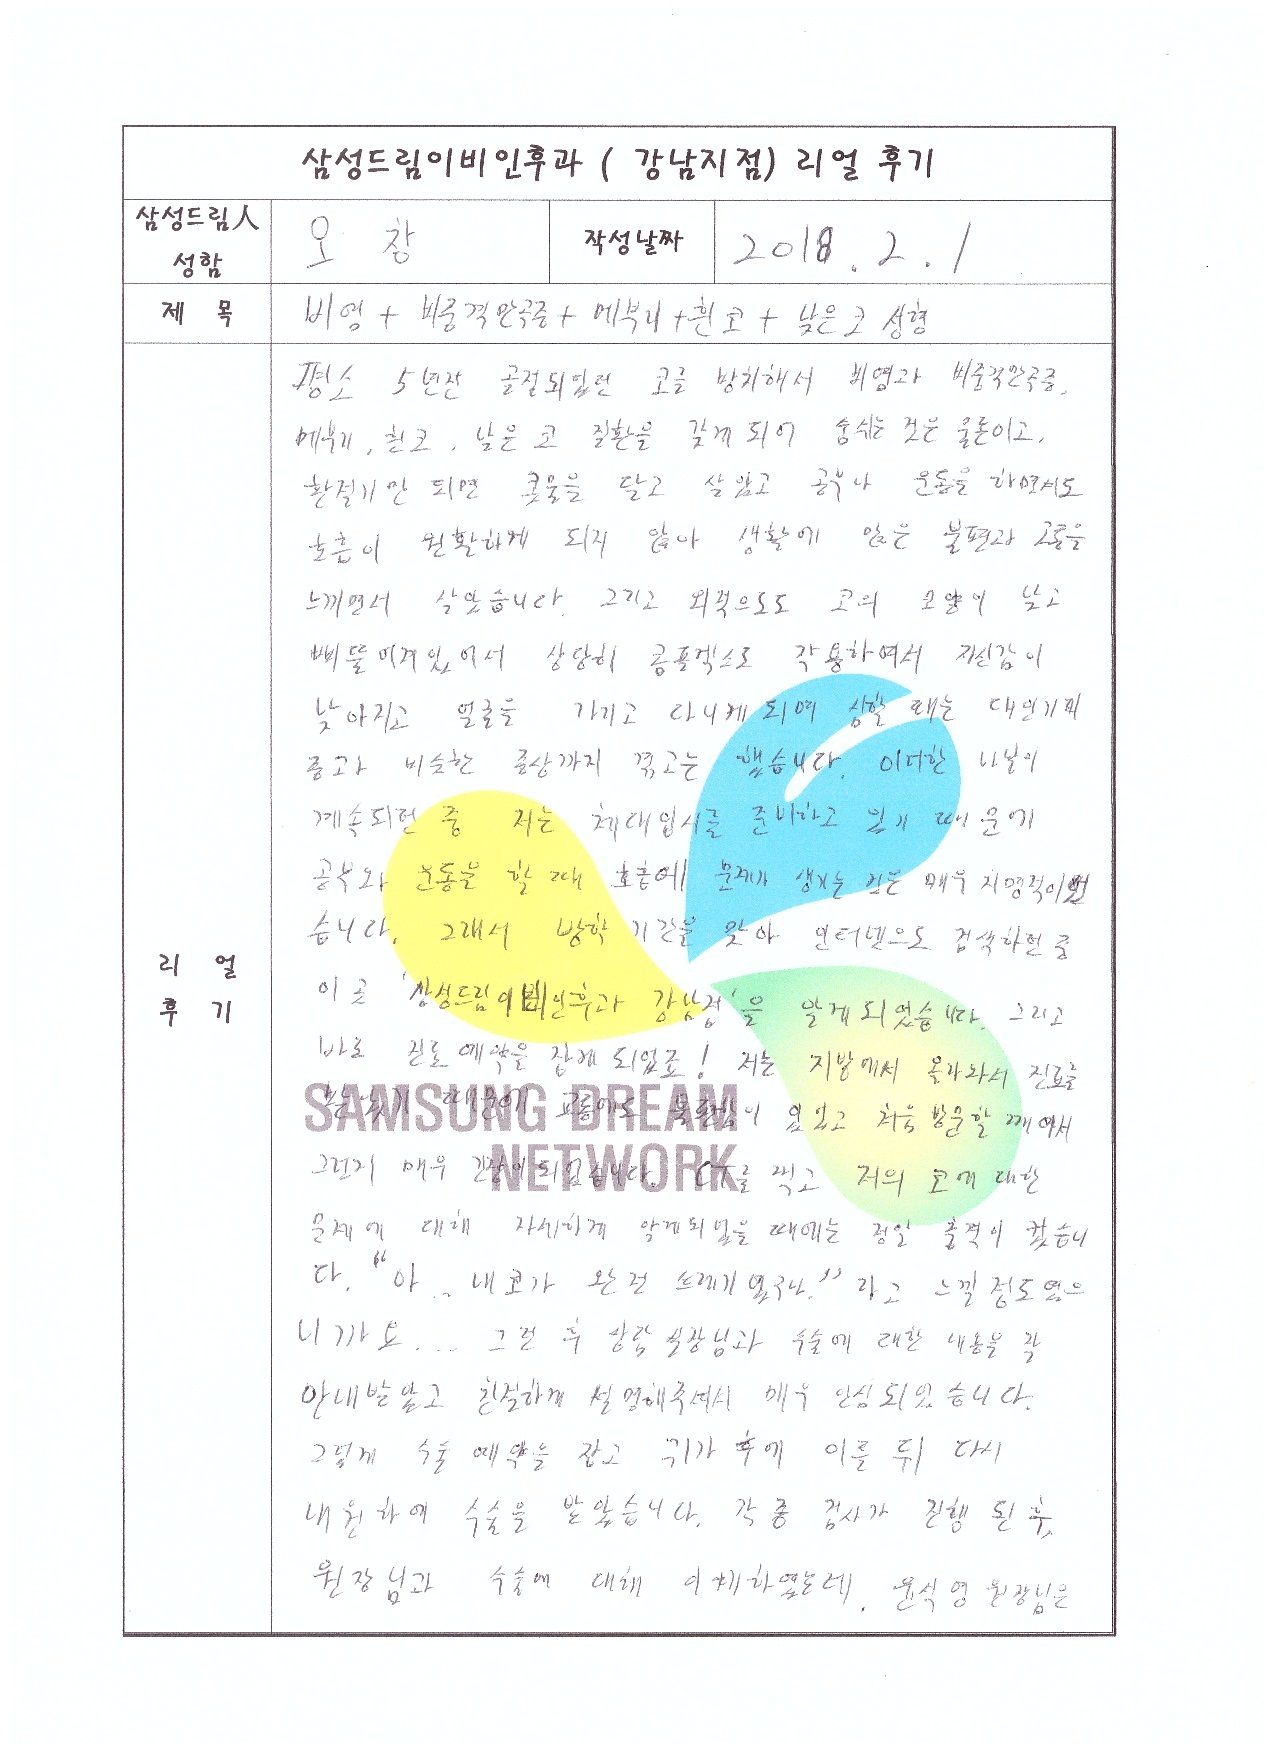 삼성드림이비인후과 ( 강남지점) 리얼 후기
삼성드림人 성함
오 창
작성날짜
2018. 2. 1
제 목
비염 + 비중격만곡증 + 메부리 + 휜 코 + 낮은 코 성형
리 얼 후 기
평소 5년전 골절되었던 코를 방치해서 비염과 비중격만곡증,
메부리, 휜코, 낮은 코 질환을 갖게 되어 숨쉬는 것은 물론이고,
환절기만 되면 콧물을 달고 살았고 공부나 운동을 하면서도
호흡이 원활하게 되지 않아 생활에 많은 불편과 고통을
느끼면서 살았습니다. 그리고 외적으로도 코의 모양이 낮고
삐뚤어져있어서 상당히 콤플렉스로 작용하여서 자신감이
낮아지고 얼굴을 가리고 다니게 되며 심할 때는 대인기피
증과 비슷한 증상까지 겪고는 했습니다. 이러한 나날이
계속되던 중 저는 체대입시를 준비하고 있기 때문에
공부와 운동을 할 때 호흡에 문제가 생기는 것은 매우 치명적이었
습니다. 그래서 방학 기간을 맞아 인터넷으로 검색하던 중
이 곳 '삼성드림이비인후과 강남점'을 알게 되었습니다. 그리고
바로 진료 예약을 잡게 되었죠! 저는 지방에서 올라와서 진료를
때문에 교통에도 불편함이 있었고 처음 방문할 때여서
그런지 매우 긴장이 되었습니다. CT를 찍고 저의 코에 대한
문제에 대해 자세하게 알게되었을 때에는 정말 충격이 컸습니
다. "아... 내 코가 완전 쓰레기였구나." 라고 느낄 정도였으
니까요.... 그런 후 상담 실장님과 수술에 대한 내용을 쫙
안내받았고 친절하게 설명해주셔서 매우 안심되었습니다.
그렇게 수술 예약을 잡고 귀가 후에 이틀 뒤 다시
내원하여 수술을 받았습니다. 각종 검사가 진행 된 후,
원장님과 수술에 대해 얘기하였는데, 윤석영 원장님은
SAMSUNG DREAM
NETWORK